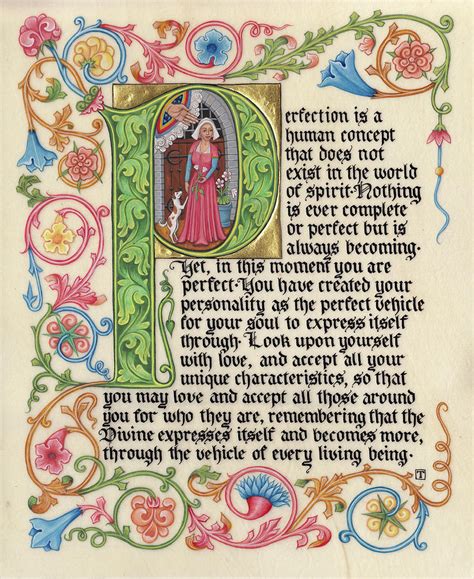 Perfection is a
human concept
that does not
exist in the world
of spirit. Nothing
is ever complete
or perfect but is
always becoming.
Yet, in this moment you are
perfect. You have created your
personality as the perfect vehicle
for your soul to express itself
through. Look upon yourself
with love, and accept all your
unique characteristics, so that
you may love and accept all those around
you for who they are, remembering that the
Divine expresses itself and becomes more,
through the vehicle of every living being.
T